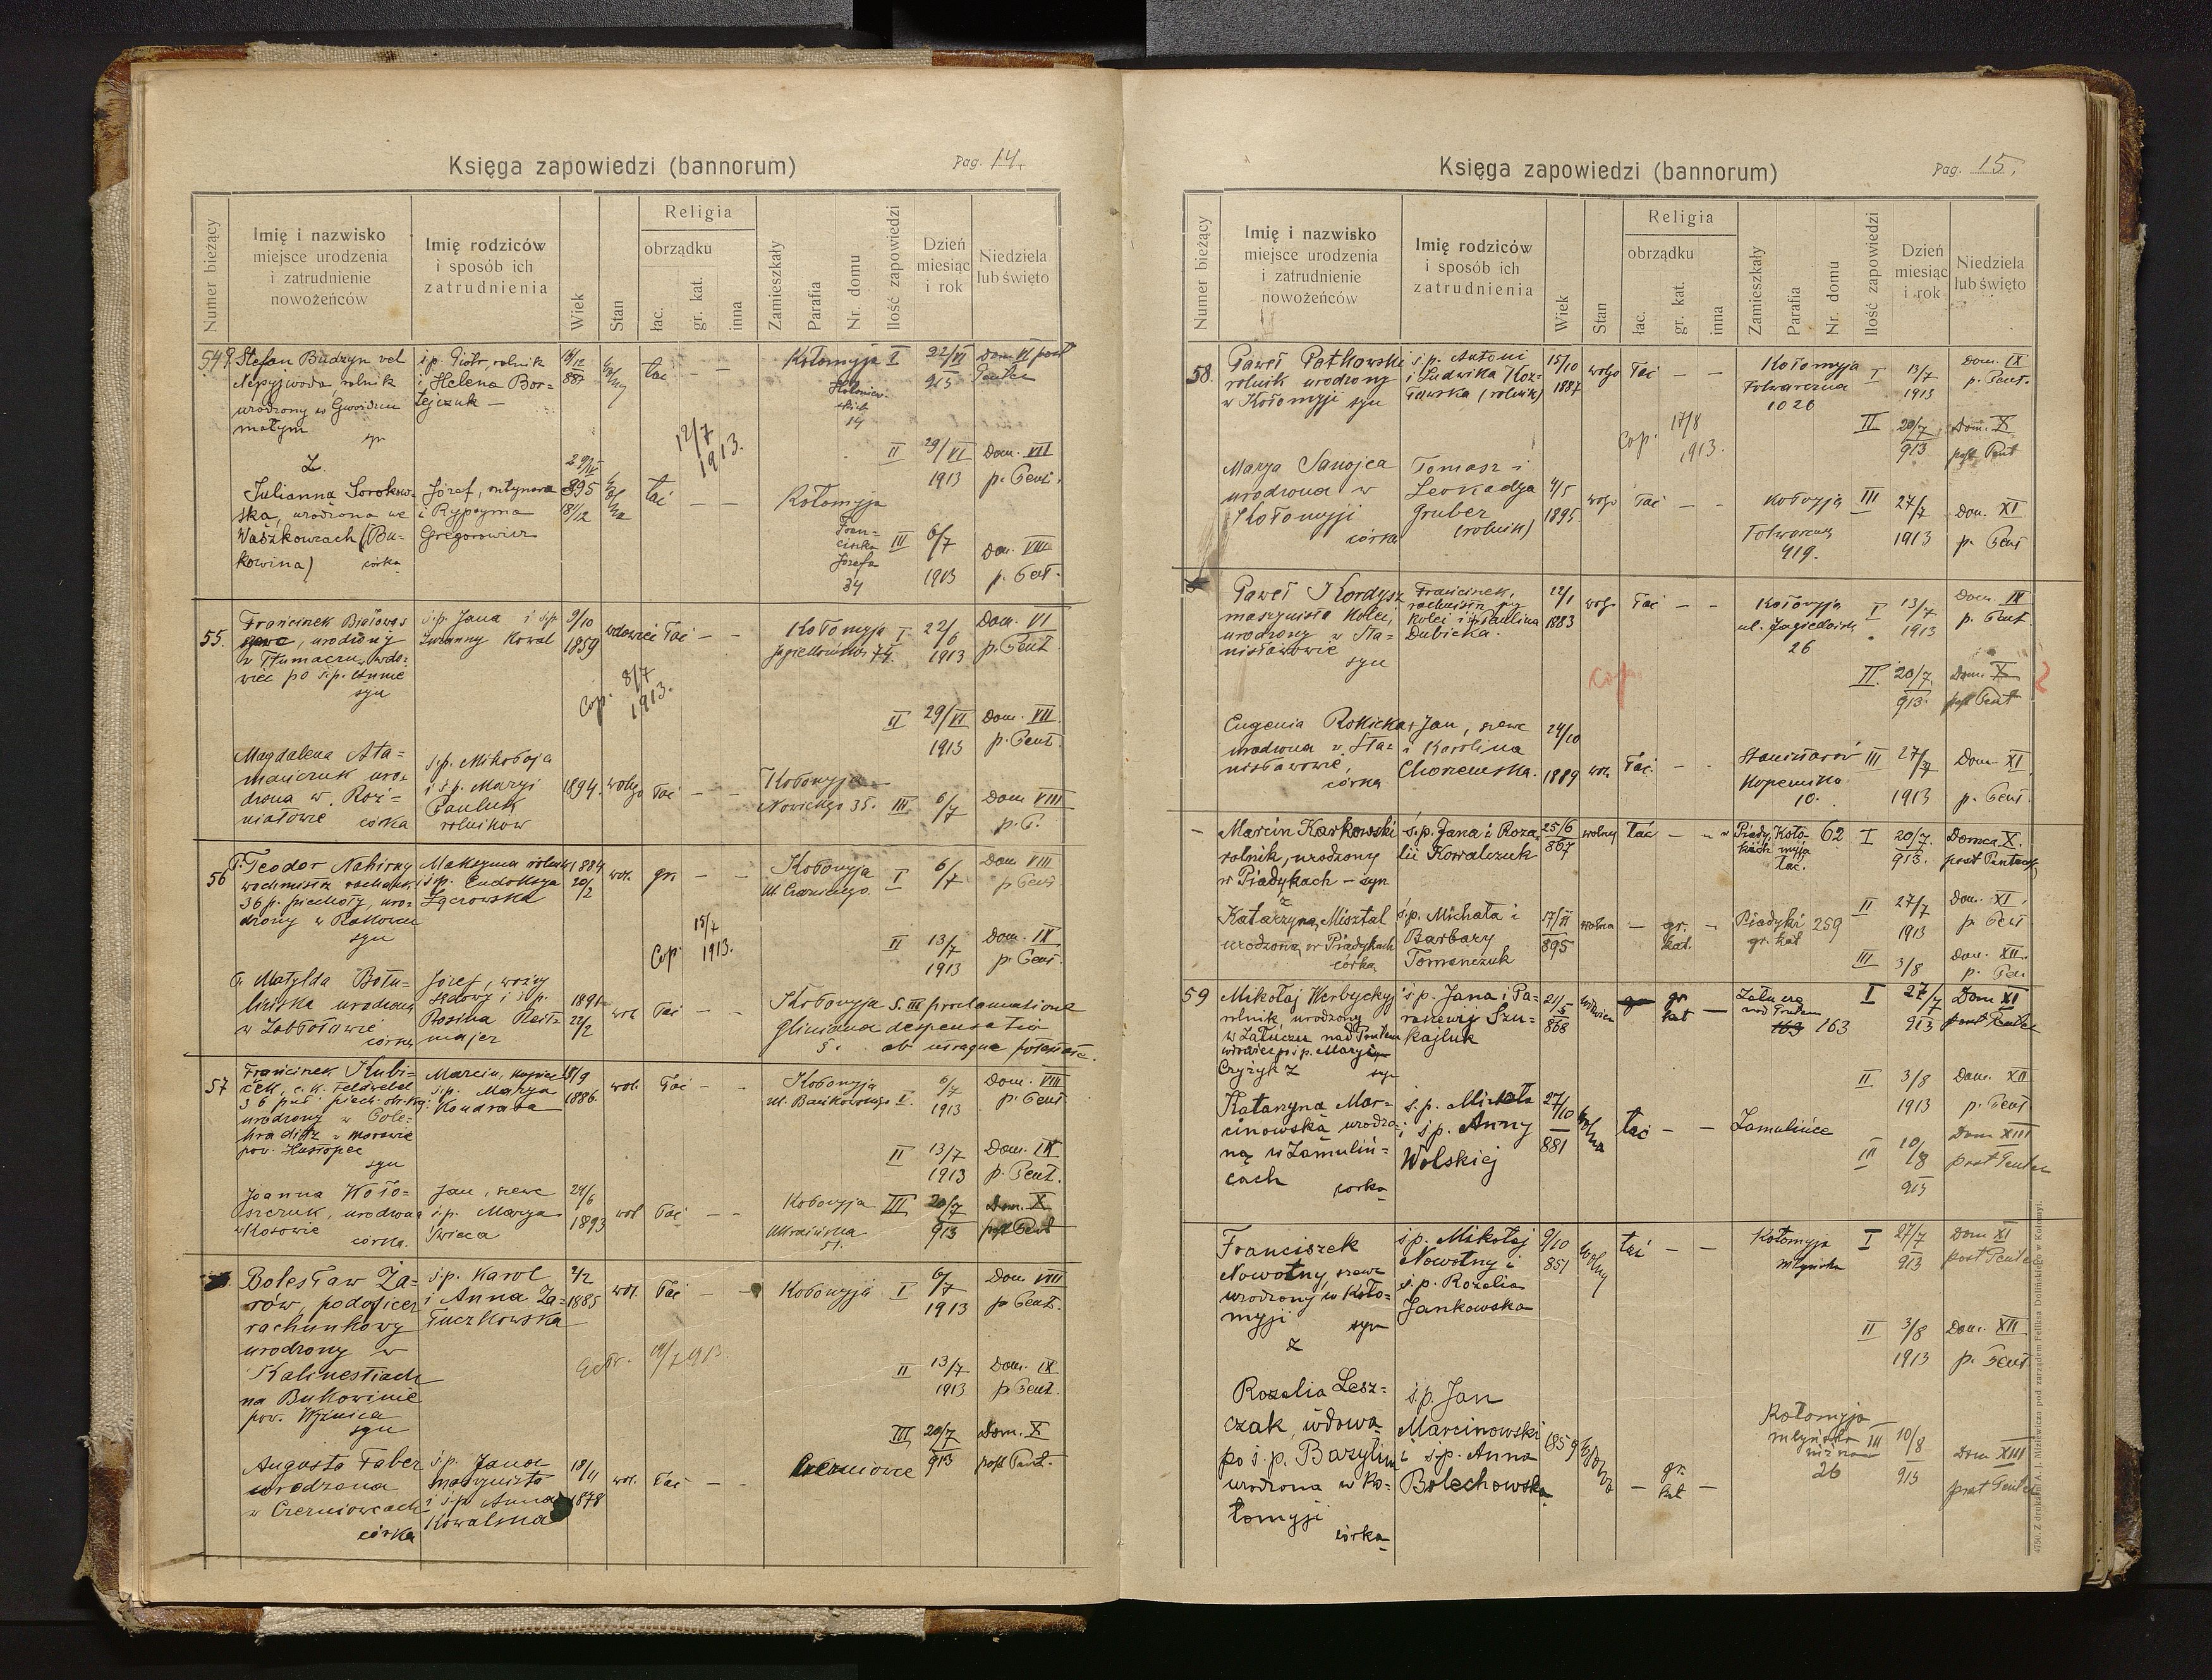 Księga zapowiedzi (bannorum)
Pag. 14.
Numer bieżący
Imię i nazwisko
miejsce urodzenia
i zatrudnienie
nowożeńców
Imię rodziców
i sposób ich
zatrudnienia
Wiek
Stan
Religia
obrządku
łac.
gr. kat.
inna
Zamieszkały
Parafia
Nr. domu
Ilość zapowiedzi
Dzień
miesiąc
i rok
Niedziela
lub święto
54
Stefan Budzyn vel
Nepyjwoda, rolnik
urodzony w Gwoźdzcu
małym
syn
ś.p. Piotr, rolnik
i Helena Bor-
łac — —
Kołomyja I
14
22/VI
913
Dom. VI post
Pentec
12/7
1913.
II 29/VI
1913
Dom. VII
p. Pent.
Z
Julianna Sorokow-
ska, urodzona we
Waszkowcach (Bu-
kowina) córka
Józef, młynarz
Gregorowicz
895
18/12
łac — —
Kołomyja
Fran-
ciszka
Józefa
34
III 6/7
1913
Dom. VIII
p. Pent.
55.
Franciszek Białowąs
urodzony
w Tłumaczu, wdo-
wiec po ś.p. Annie
syn
ś.p. Jana i ś.p.
Zuzanny Kowal
9/10
1859
wdowiec łac — —
Kołomyja
Jagiellońska 74.
I 22/6
1913
Dom. VI
p. Pent.
Cop. 8/7
1913.
II 29/VI
1913
Dom. VII.
p. Pent.
Magdalena Ata-
mańczuk uro-
dzona w Roż-
niatowie córka
ś.p. Mikołaja
i ś.p. Maryi
Pauluk
rolników
1894. łac — —
Kołomyja
Nowickego 35.
III 6/7
Dom VIII
p. P.
56
Teodor Nahirny
36 p. piechoty, uro-
dzony w Rakowcu
syn
Maksyma rolnik
i ś.p. Eudoksya
1884
20/2
gr. — —
Kołomyja
I 6/7
Dom VIII
p. Pent
Cop. 15/7
1913.
II 13/7
1913
Dom. IX
p. Pent.
Matylda Bołu-
urodzona
w Zabłotowie
córka
Józef, woźny
sądowy i ś.p.
Rosina Reit-
majer
22/2
wol łac — —
Kołomyja S. III proclamatione
Gliniana despensatio
57
Franciszek Kubi-
ček, c.k. Feldwebel
36 puł. piech. obr. kraj.
urodzony w Gole-
hraditz w Morawie
pow. Hustopec
syn
Marcin, kupiec
ś.p. Marya
Koudrata
18/9
1886.
wol. łac — —
Kołomyja
ul. Bańkowskego I.
6/7
1913
Dom. VIII
p. Pent
II 13/7
1913
Dom. IX
p. Pent.
Joanna Woło-
szczuk, urodzona
w Kosowie
córka.
Jan, szewc
i ś.p. Marya
Świeca
24/6
1893
wol łac — —
Kołomyja
51.
III 20/7
913
Dom. X
post Pent
Bolesław Ża-
rów, podoficer
rachunkowy
urodzony w
Kalinestiach
na Bukowinie
pow. Wyżnica
syn
ś.p. Karol
i Anna Za-
łuczkowska
2/2
1885
wol. łac — —
Kołomyja I
6/7
1913
Dom VIII
p. Pent.
II 13/7
1913
Dom. IX
p. Pent.
III 20/7
913
Dom. X
post Pent.
Augusta Faber
urodzona
w Czerniowcach
córka
ś.p. Jana
maszynista
i ś.p. Anna
Kowalska
18/11
1878
wol. łac — —
Czerniowce
Księga zapowiedzi (bannorum)
Pag. 15.
Numer bieżący
Imię i nazwisko
miejsce urodzenia
i zatrudnienie
nowożeńców
Imię rodziców
i sposób ich
zatrudnienia
Wiek
Stan
Religia
obrządku
łac.
gr. kat.
inna
Zamieszkały
Parafia
Nr. domu
Ilość zapowiedzi
Dzień
miesiąc
i rok
Niedziela
lub święto
58.
Paweł Patkowski
rolnik urodzony
w Kołomyji syn
ś.p. Antoni
i Ludwika Koz-
łowska (rolnik)
15/10
1887
łac — —
Kołomyja
Folwarczna
1026
I 13/7
1913
Dom. IX
p. Pent.
Cop. 17/8
1913.
II 20/7
913
Dom. X
post Pent
Marya Sanojca
urodzona w
Kołomyji
córka
Tomasz i
Leokadya
Gruber
(rolnik)
4/5
1895
łac — —
Kołomyja
419.
III 27/7
1913
Dom. XI
p. Pent
Paweł Kordysz
maszynista kolei,
urodzony w Sta-
nisławowie
syn
Franciszek,
kolei i Paulina
Dubicka.
12/1
1883
łac — —
Kołomyja
ul. Jagiellońska
26
I 13/7
1913
Dom. IX
p. Pent.
Cop.
II. 20/7
913.
Dom. X
post Pent
Eugenia Rokicka
urodzona w Sta-
nisławowie,
córka
Jan, szewc
i Karolina
24/10
1889
łac. — —
Stanisławów
Kopernika
10.
III 27/7
1913
Dom. XI
p. Pent.
—
Marcin Karkowski
rolnik, urodzony
w Piadykach — syn
ś.p. Jana i Roza
lii Kowalczuk
25/6
867
wolny łać —
Piady- Koło-
kach myja
łac.
62 I
20/7.
913.
Domca X.
post Pentec
z
Katarzyna Misztal
urodzona w Piadykach
córka
ś.p. Michała i
Barbary
Tomanczuk
895
wolna — gr. kat.
Piadyki 259
gr. kat
II 27/7
1913
Dom. XI.
p. Pent
III 3/8
Dom. XII.
p. Pen.
59
Mikołaj Werbyckyj
rolnik urodzony
w Załuczu nad Prutem
wdowiec po ś.p. Maryi
Czyżyk z syn
ś.p. Jana i Pa-
raszewy Szu-
kajluk
868
gr kat —
nad Prutem
163
I 27/7
913
Dom XI
post Pentec
II 3/8
1913
Dom. XII
p. Pent
Katarzyna Mar-
cinowska urodzo-
na w Zamuliń-
cach córka
ś.p. Michała
i ś.p. Anny
Wolskiej
27/10
881
wolna łac — —
Zamulińce
III 10/8
913
Dom XIII
post Pentec
Franciszek
Nowotny, szewc
urodzony w Koło-
myji syn
z
ś.p. Mikołaj
Nowotny i
ś.p. Rozalia
Jankowska
9/10
851
wolny łać — —
Kołomyja
młyńska
I 27/7
913
Dom XI
post Pentec
II 3/8
1913
Dom. XII
p. Pent.
Rozalia Lesz-
czak, wdowa
po ś.p. Bazylim
urodzona w Ko-
łomyji
córka
ś.p. Jan
Marcinowski
i ś.p. Anna
Bolechowska
1859 wdowa — gr. kat —
Kołomyja
młyńska
niżna
26
III 10/8
913
Dom XIII
post Pentec
4750. Z drukarni A. J. Miziewicza pod zarządem Feliksa Dolińskiego w Kołomyi.